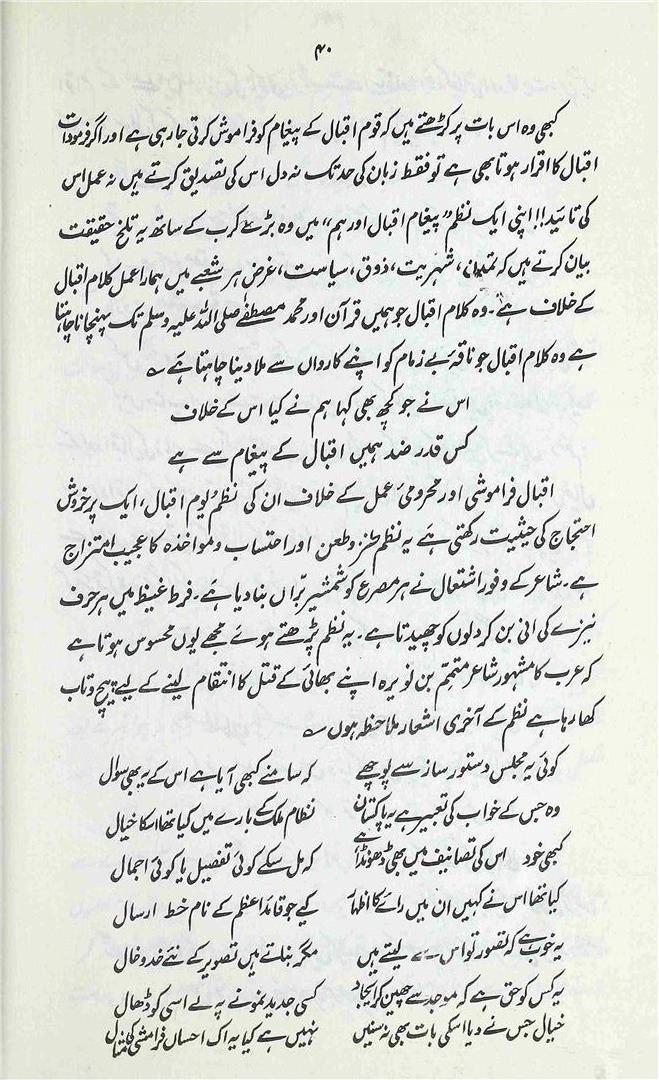 ۴۰
کبھی وہ اس بات پر کڑھتے ہیں کہ قوم اقبال کے پیغام کو فراموش کرتی جا رہی ہے اور اگر فرمودات
اقبال کا اقرار ہوتا بھی ہے تو فقط زبان کی حد تک نہ دل اس کی تصدیق کرتے ہیں نہ عمل اس
کی تائید!! اپنی ایک نظم "پیغام اقبال اور ہم" میں وہ بڑے کرب کے ساتھ یہ تلخ حقیقت
بیان کرتے ہیں کہ تمدن، شہریت، ذوق، سیاست، غرض ہر شعبے میں ہمارا عمل کلام اقبال
کے خلاف ہے۔ وہ کلام اقبال جو ہمیں قرآن اور محمد مصطفےٰ صلی اللہ علیہ وسلم تک پہنچانا چاہتا
ہے وہ کلام اقبال جو ناقۂ بے زمام کو اپنے کارواں سے ملا دینا چاہتا ہے ؎
اس نے جو کچھ بھی کہا ہم نے کیا اس کے خلاف
کس قدر ضد ہمیں اقبال کے پیغام سے ہے
اقبال فراموشی اور محرومیٔ عمل کے خلاف ان کی نظم یوم اقبال، ایک پرخروش
احتجاج کی حیثیت رکھتی ہے یہ نظم طنز و طعن اور احتساب و مواخذہ کا عجیب امتزاج
ہے۔ شاعر کے وفور اشتعال نے ہر مصرع کو شمشیر براں بنا دیا ہے۔ فرط غیظ میں ہر حرف
نیزے کی انی بن کر دلوں کو چھیدتا ہے۔ یہ نظم پڑھتے ہوئے مجھے یوں محسوس ہوتا ہے
کہ عرب کا مشہور شاعر متمم بن نویرہ اپنے بھائی کے قتل کا انتقام لینے کے لیے پیچ و تاب
کھا رہا ہے نظم کے آخری اشعار ملاحظہ ہوں ؎
کوئی یہ مجلس دستور ساز سے پوچھے کہ سامنے کبھی آیا ہے اس کے یہ بھی سوال
وہ جس کے خواب کی تعبیر ہے یہ پاکستان نظام ملک کے بارے میں کیا تھا اسکا خیال
کبھی خود اس کی تصانیف میں بھی ڈھونڈا ہے کہ مل سکے کوئی تفصیل یا کوئی اجمال
کیا تھا اس نے کہیں ان میں رائے کا اظہار کیے جو قائد اعظم کے نام خط ارسال
یہ خوب ہے کہ تصور تو اس سے لیتے ہیں مگر بناتے ہیں تصویر کے نئے خدوخال
یہ کس کو حق ہے کہ موجد سے چھین کر ایجاد کسی جدید نمونے پہ لے اسی کو ڈھال
خیال جس نے دیا اسکی بات بھی نہ سنیں نہیں ہے کیا یہ اک احساں فرامشی کی مثال